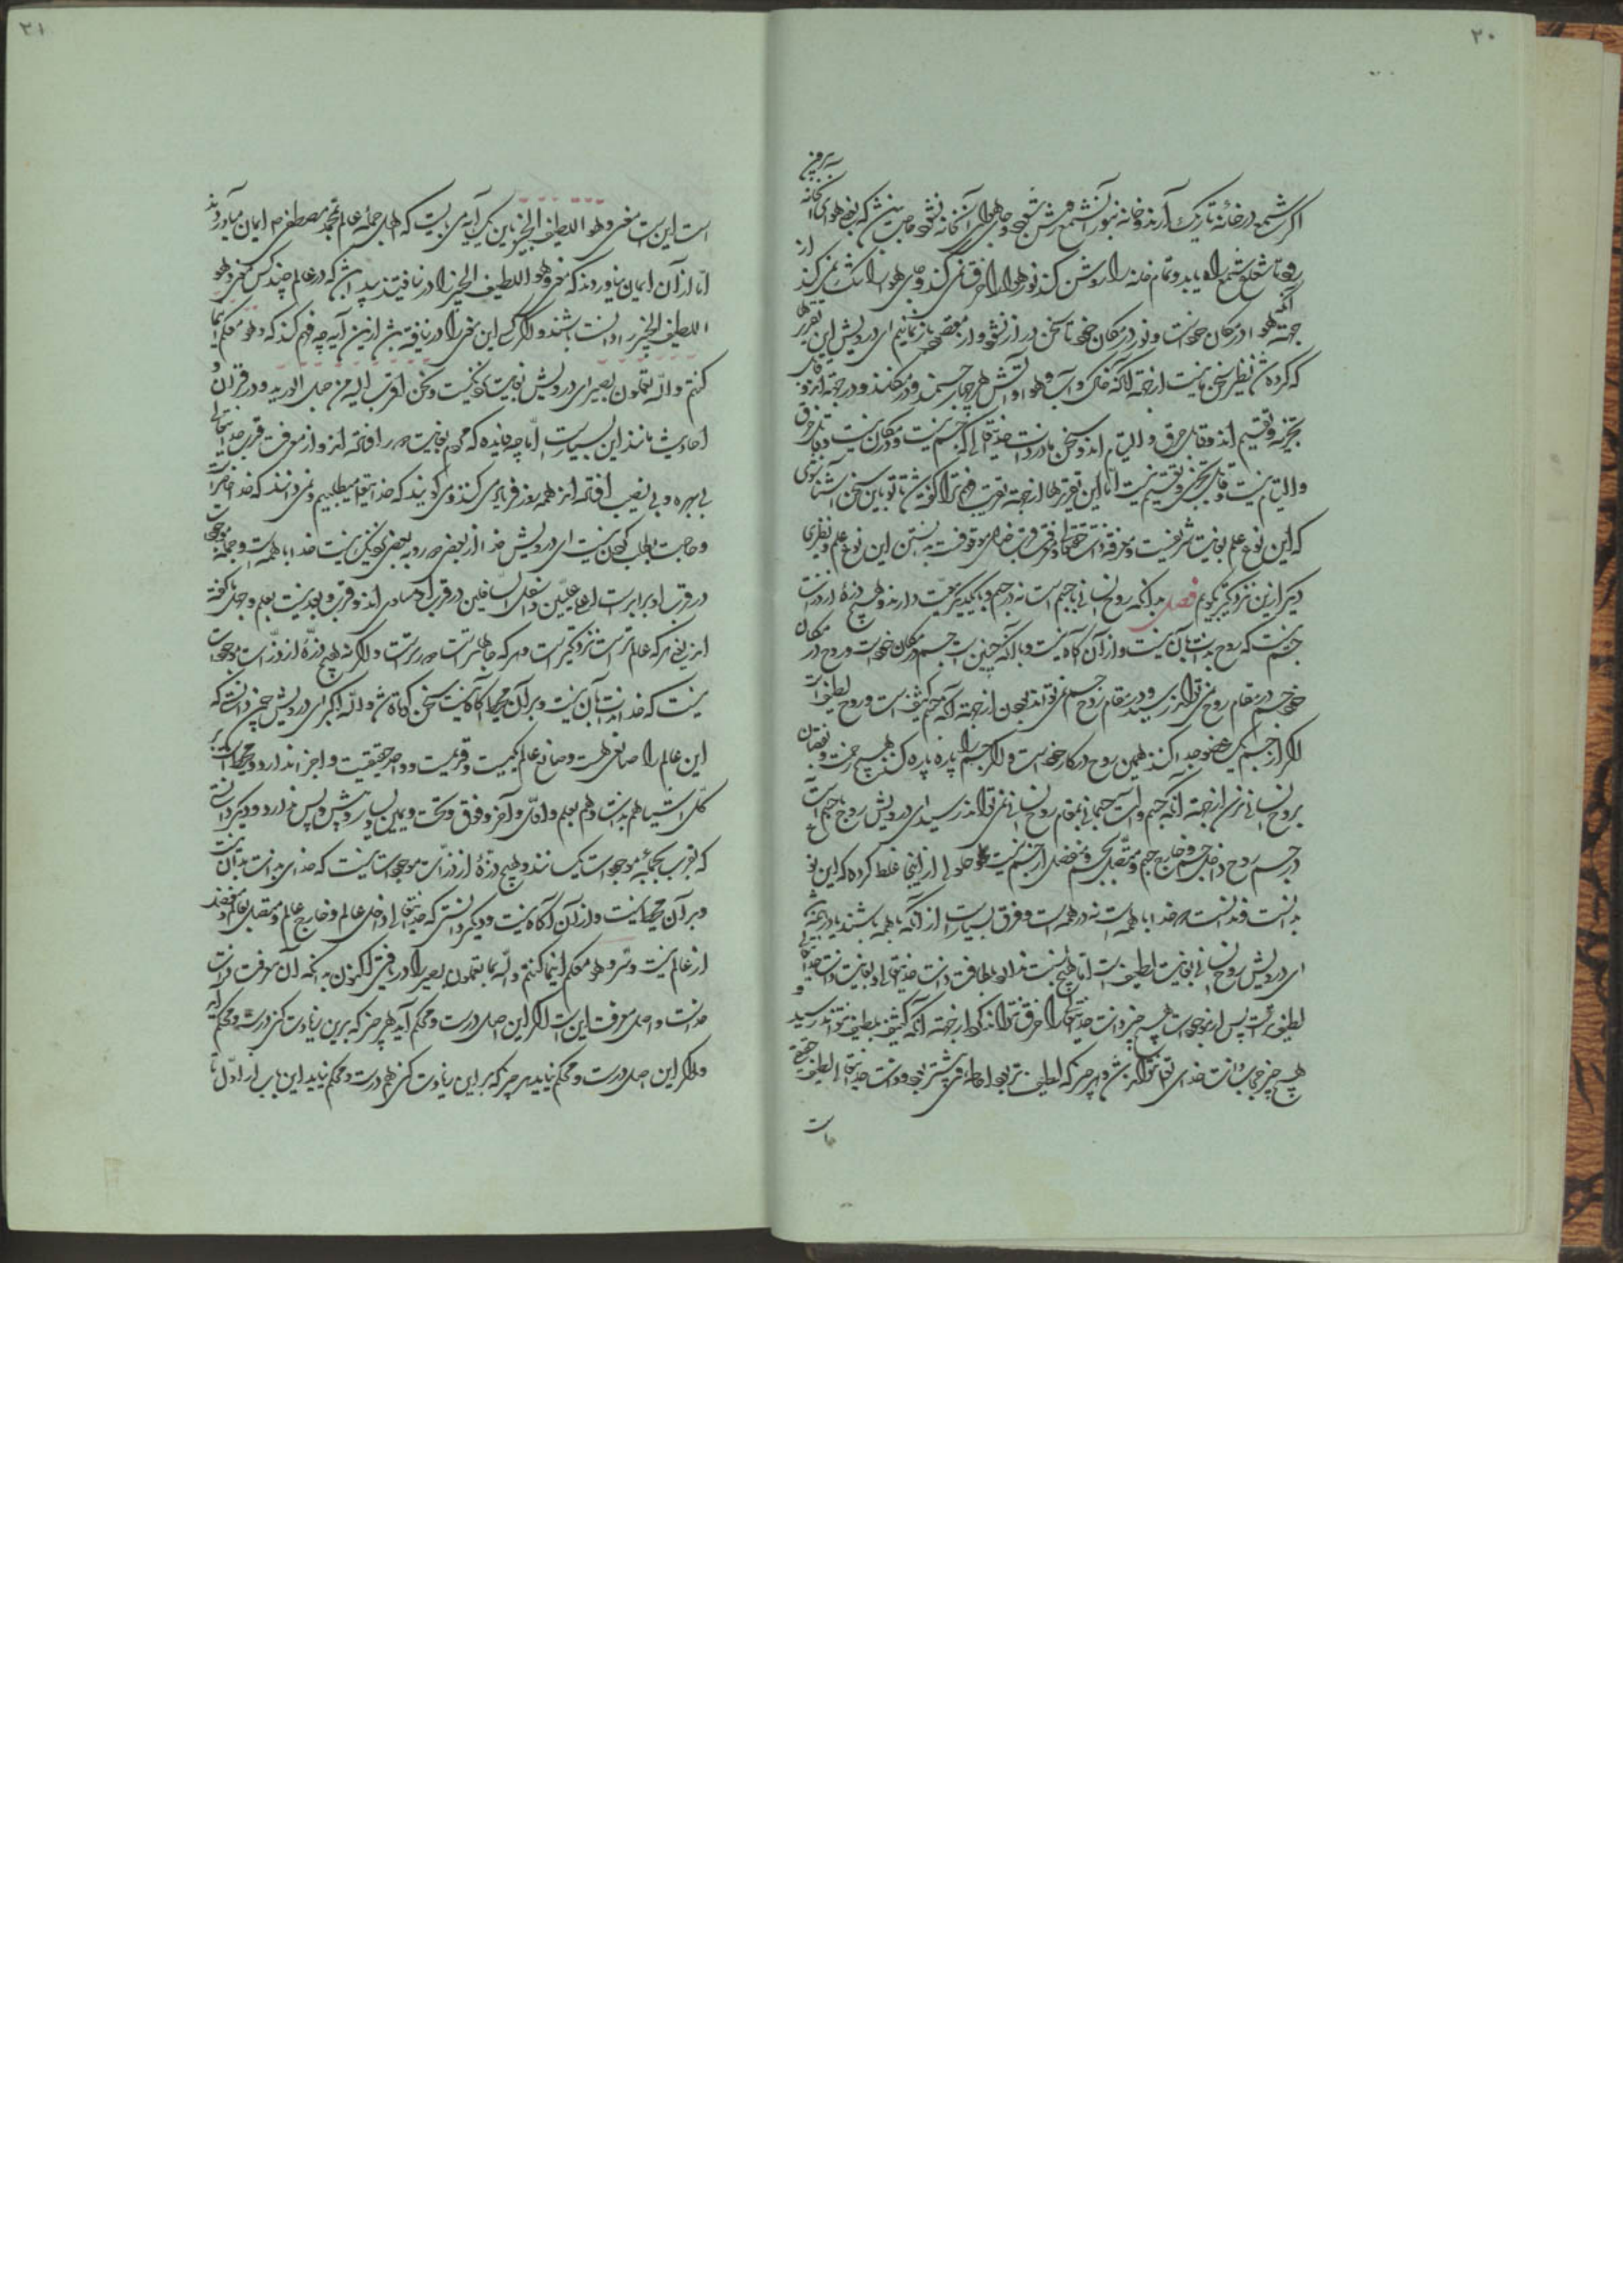 ۲۰
اگر شمع در خانهٔ تاریک آرند و خانه بنور آن شمع روشن شود و جای هوای آن خانه نشود حاجت نباشد که بعضی هوای آنخانه بیرون
رود تا شعاع شمع راه یابد و تمام خانه را روشن کند نور هوا را خرق نمی کند و جای هوا را تنگ نمی کند از
جهة آنکه هوا در مکان خود است و نور در مکان خود تا سخن دراز نشود و از مقصود باز نمانیم ای درویش این تقریرها
که کرده شد نظیر سخن ما نیست از جهة آنکه خاک و آب و هوا و آتش هر چهار جسمند و در مکانند و در جهة اند و قابل
تجزیه و تقسیم اند و قابل خرق و التیام اند و سخن ما در ذات خدایتعالی که جسم نیست و در مکان نیست و قابل خرق
و التیام نیست و قابل تجزی و تقسیم نیست اما این تقریرها از جهة تقریب فهم ترا گفته شد تا تو باین سخن آشنا شوی
که این نوع علم بغایت شریفست و معرفة ذات حقتعالی و قرب خدای موقوفست بدانستن این نوع علم و نظری
دیگر ازین نزدیکتر بگویم فصل بدانکه روح انسانی با جسم است نه در جسم و با یکدیگر معیت دارند و هیچ ذرهٔ از ذرات
جسم نیست که روح بذات با آن نیست و از آن آگاه نیست و با آنکه چنین است جسم در مکان خود است و روح در مکان
خود جسم در مقام روح نمی تواند رسید و در مقام روح جسم نمی تواند بودن از جهة آنکه جسم کثیف است و روح لطیف است
اگر از جسم یک عضو جدا کنند همین روح در کار خود است و اگر جسم را پاره پاره کنند هیچ زحمت و نقصان
بروح انسانی نرسد از جهة آنکه جسم و آلت جسمانی بمقام روح انسانی نمی تواند رسید ای درویش روح با جسم است
در جسم روح داخل جسم و خارج جسم و متصل بجسم و منفصل از جسم نیست حلولی از اینجا غلط کرده که این
بدانست و ندانست که خدا با همه است نه در همه است و فرق بسیار است از آنکه با همه باشند یا در همه باشند
ای درویش روح انسانی بغایت لطیف است اما هیچ نسبت ندارد بلطافت ذات خدایتعالی و بغایت ذات خدایتعالی
لطیف است پس از موجودات هیچ چیز ذات خدایتعالی را خرق نتواند کرد از جهة آنکه کثیف بلطیف نتواند رسید و
هیچ چیز حجاب ذات خدای تعالی نتواند شد و هر چیز که لطیف تر بود احاطهٔ او بیشتر بود و ذات خدایتعالی لطیف حقیقی
است
۲۱
است این است معنی و هو اللطیف الخبیر باین یک آیه می بایست که اهل جملهٔ عالم بمحمد مصطفی ص ایمان میآوردند
اما از آن ایمان نیاوردند که معنی و هو اللطیف الخبیر را در نیافتند پیدا باشد که در عالم چند کس معنی و هو
اللطیف الخبیر را دانسته باشند و اگر کسی این معنی را در نیافته باشد ازین آیه چه فهم کند که و هو معکم اینما
کنتم و الله بما تعملون بصیر ای درویش بغایت نزدیکست و نحن اقرب الیه من حبل الورید و در قرآن و
احادیث مانند این بسیار است اما چه فایده که مردم بغایت دور افتاده اند و از معرفت قرب خدایتعالی
بی بهره و بی نصیب افتاده اند همه روز فریاد می کنند و می گویند که خدایتعالی را میطلبیم و نمی دانند که خدا حاضر است
و حاجت بطلب کردن نیست ای درویش خدا از بعضی دور و به بعضی نزدیک نیست خدا با همه است و جملهٔ موجودات
در قرب او برابر است اعلی علیین و اسفل السافلین در قرب او مساوی اند و قرب و بعد نسبت بعلم و جهل ما گفته
اند یعنی هر که عالم تر است نزدیکتر است و هر که جاهل تر است دورتر است و اگر نه هیچ ذرهٔ از ذرات موجودات
نیست که خدا بذات با آن نیست و بر آن محیط و آگاه نیست سخن کوتاه شد و الله اکبر ای درویش چون دانستی که
این عالم را صانعی هست و صانع عالم یکیست و قدیمست و واحد حقیقیست و اجزا ندارد و محیط است بر
کل اشیا هم بذات و هم بعلم و اول و آخر و فوق و تحت و یمین و یسار و پیش و پس ندارد و دیگر دانستی
که بقرب بجملهٔ موجودات یکسانند و هیچ ذرهٔ از ذرات موجودات نیست که خدای بذات بدان نیست
و بر آن محیط نیست و از آن آگاه نیست و دیگر دانستی که خدایتعالی داخل عالم و خارج عالم و متصل بعالم و منفصل
از عالم نیست و سر و هو معکم اینما کنتم و الله بما تعملون بصیر را دریافتی اکنون بدانکه آن معرفت ذات
خداست و اصل معرفت این است اگر این اصل درست و محکم آید هر چیز که برین زیادت کنی درست و محکم آید
و اگر این اصل درست و محکم نیاید هر چیز که بر این زیادت کنی هم درست و محکم نیاید این بار از اول تا